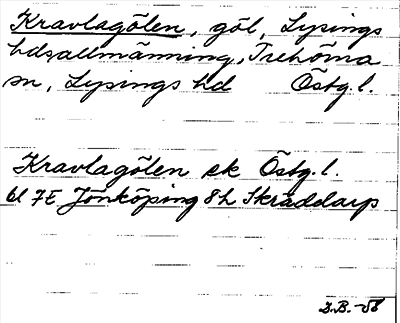 Kravlagölen, göl, Lysings
hdsallmänning, Trehörna
sn, Lysings hd Östg.l.
Kravlagölen ek Östg.l.
bl 7E Jönköping 8h Skräddarp